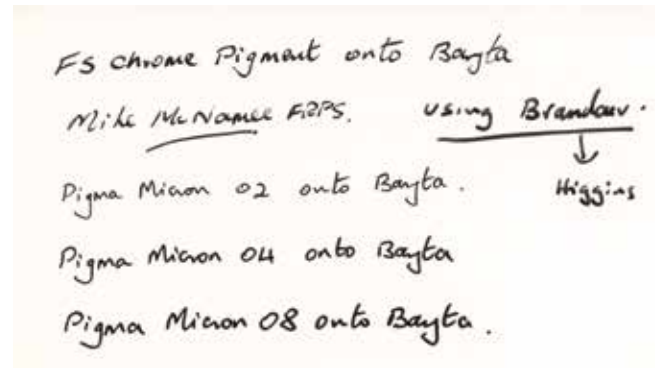 FS chrome Pigment onto Bayta
Mike McNamee FRPS. using Brandauer.
Higgins
Pigma Micron 02 onto Bayta.
Pigma Micron 04 onto Bayta
Pigma Micron 08 onto Bayta.